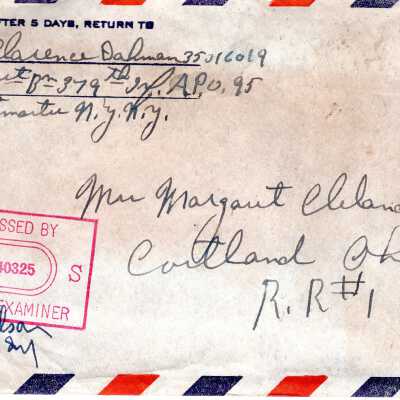 FTER 5 DAYS, RETURN TO
Clarence Dahman 35016019
379th Inf. A.P.O. 95
N.Y. N.Y.
Mrs Margaret Cleland
Cortland Oh
R.R #1
SSED BY
40325 S
EXAMINER